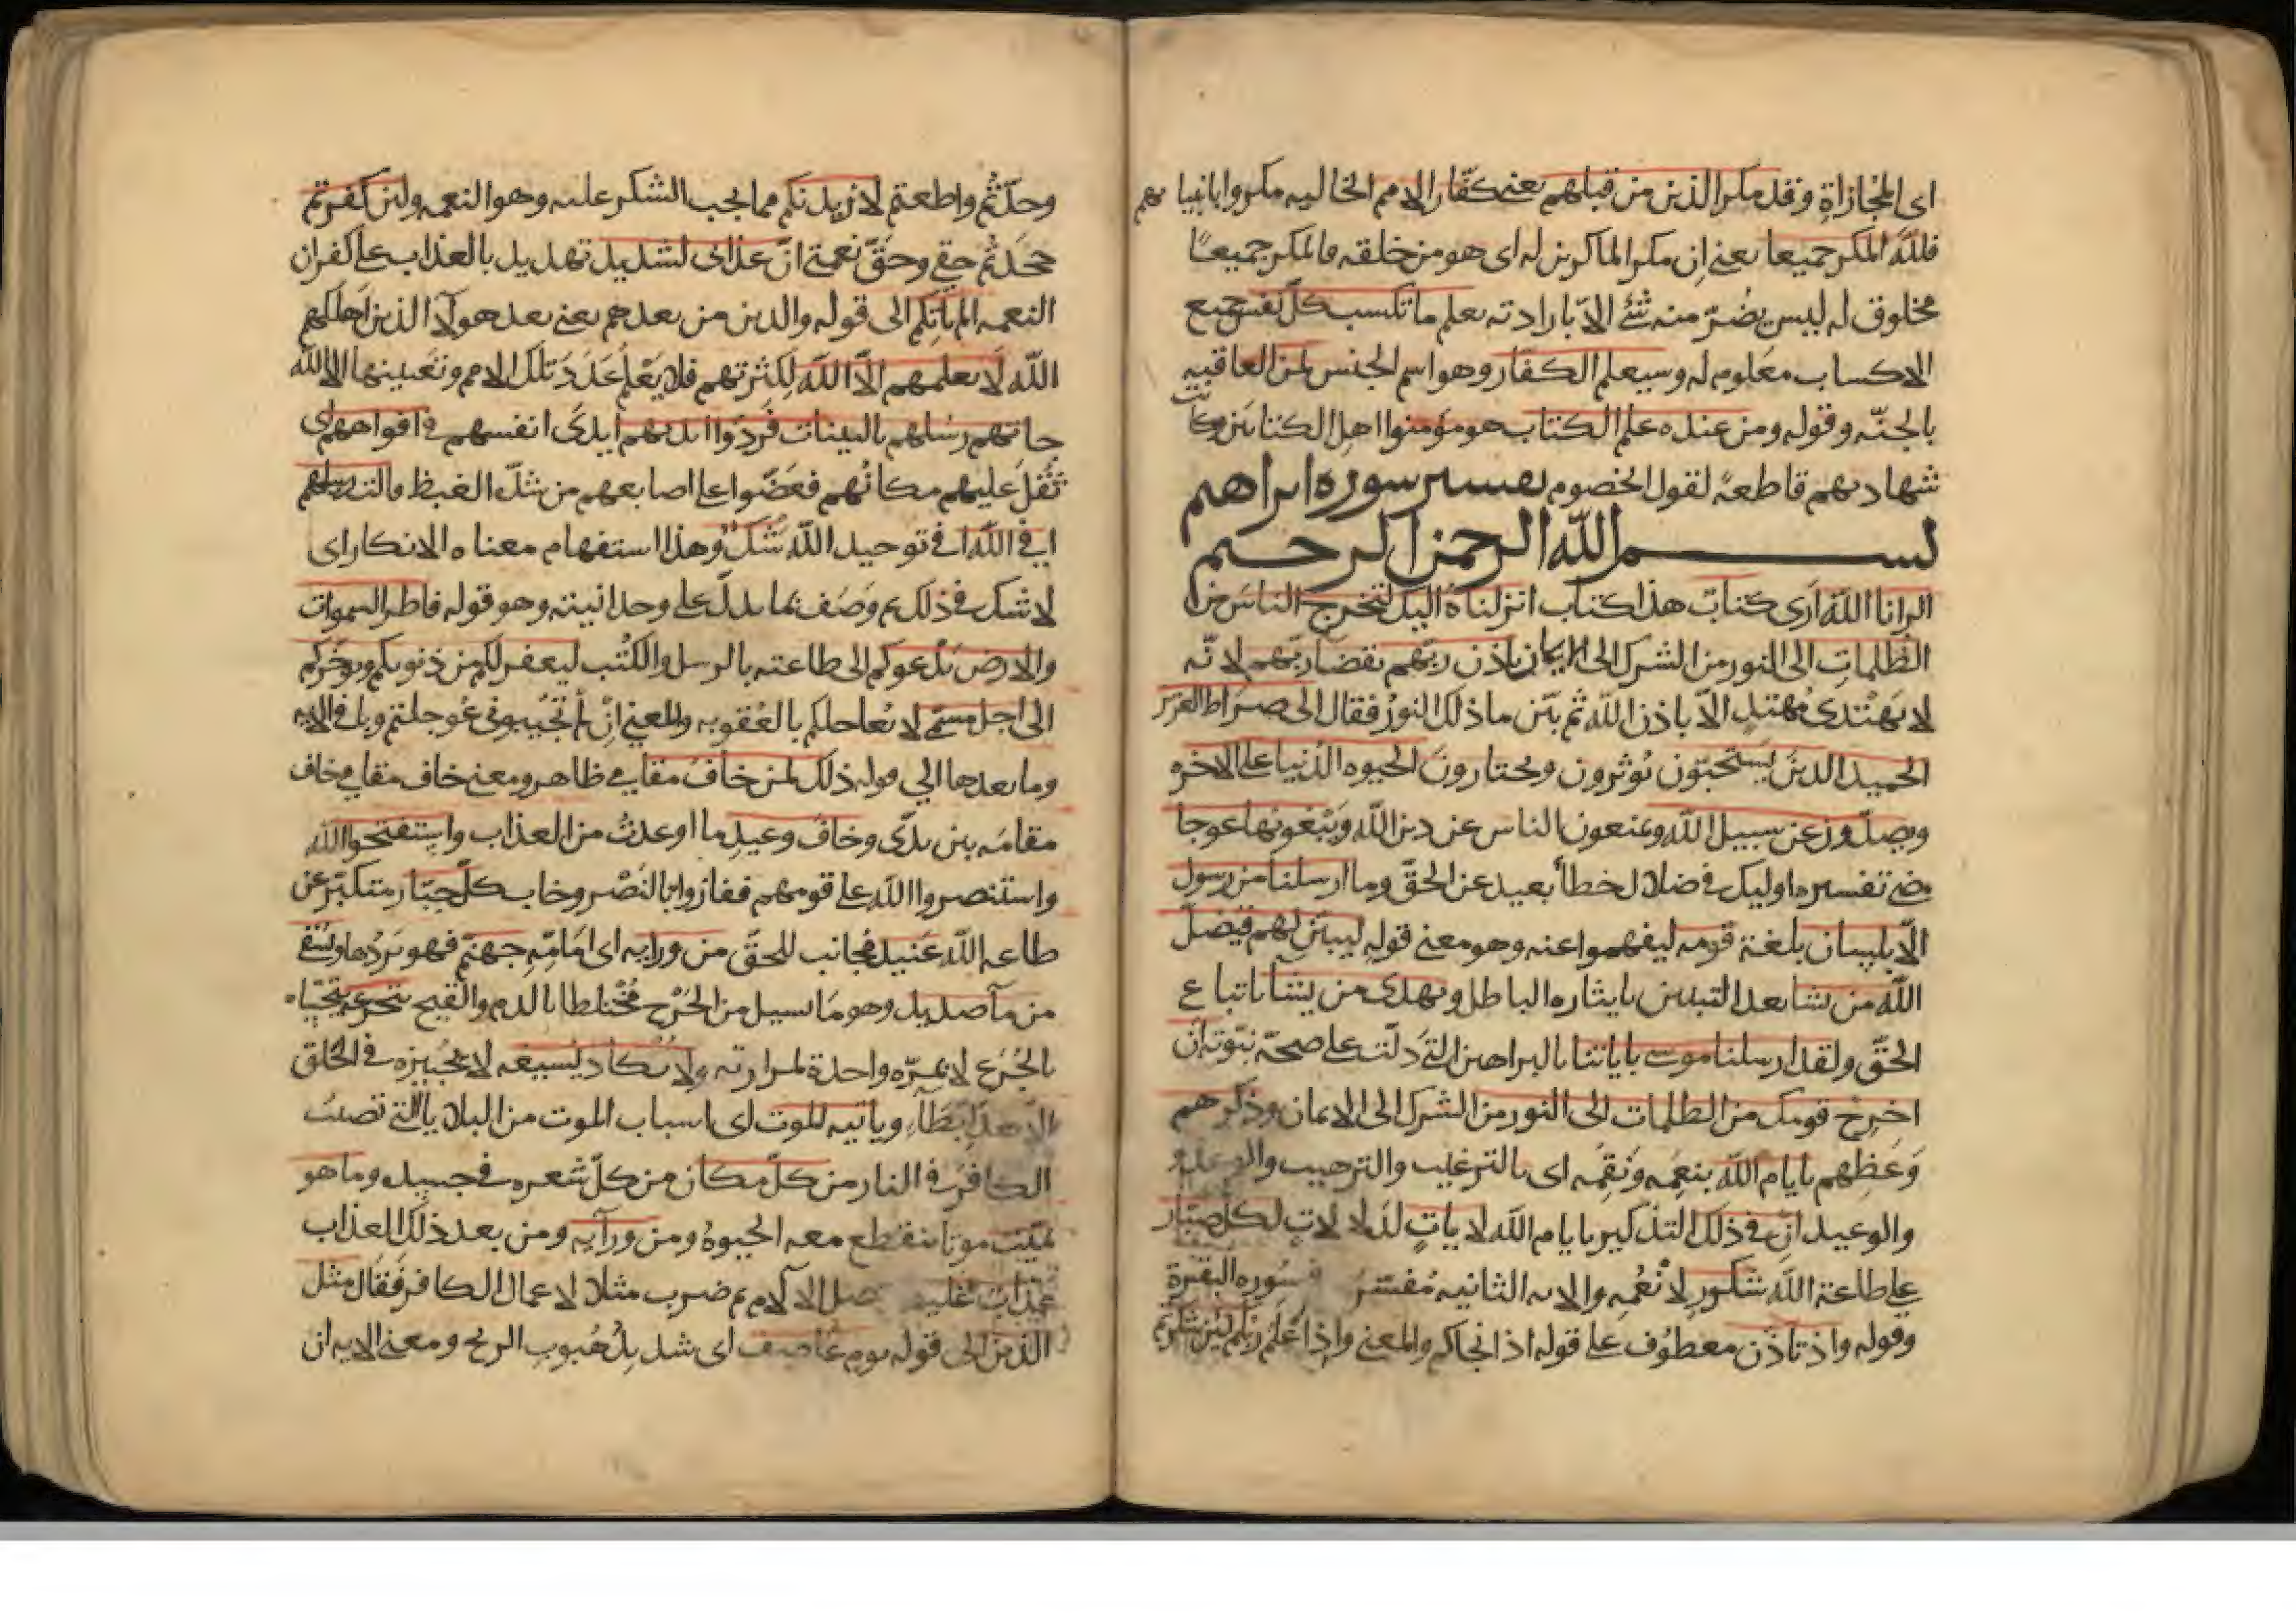 اى المجازاة وقد مكر الذين من قبلهم يعنى كفّار الامم الخاليه مكروا بانبيايهم
فللّه المكر جميعا يعنى ان مكر الماكرين له اى هو من خلقه فالمكر جميعًا
مخلوق له ليس يضُرّ منه شئ الاّ بارادته يعلم ما تكسب كلّ نفس جميع
الاكساب معلوم له وسيعلم الكفار وهو اسم الجنس لمن العاقبه
بالجنّه وقوله ومن عنده علم الكتاب هو مومنوا اهل الكتابين وكانت
شهادتهم قاطعةً لقول الخصوم تفسير سوره ابراهيم
بسم الله الرحمن الرحيم
الر انا الله ارى كتابٌ هذا كتاب انزلناه اليك لتخرج الناس من
الظلمات الى النور من الشرك الى الايمان باذن ربّهم بقضا ربّهم لانّه
لا يهتدى مُهتدٍ الاّ باذن الله ثم بيّن ما ذلك النور فقال الى صراط العزيز
الحميد الذين يستحبّون يُوثرون ويختارون الحيوه الدنيا على الاخره
ويصدّون عن سبيل الله ويمنعون الناس عن دين الله ويَبْغونها عوجا
مضى تفسيره اوليك فى ضلال خطأ بعيد عن الحقّ وما ارسلنا من رسول
الاّ بلسان بلغة قومه ليفهموا عنه وهو معنى قوله ليبيّن لهم فيُضلّ
الله من يشا بعد التبيين بايثاره الباطل ويهدى من يشا باتباع
الحقّ ولقد ارسلنا موسى باياتنا بالبراهين التى دلّت على صحّة نبوّته ان
اخرِج قومك من الظلمات الى النور من الشرك الى الايمان وذكّرهم
وَعَظهم بايام الله بنِعَمِه ونِقَمِه اى بالترغيب والترهيب والوعد و
والوعيد انّ فى ذلك التذكير بايام الله لاياتٍ لدلالات لكل صبّار
على طاعة الله شكور لأنْعُمِه والايه الثانيه مُفسّرة فى سوره البقرة
وقوله واذ تاذّن معطوف على قوله اذ انجاكم والمعنى واذ اعلم ربكم لئن شكرتم
وحدّتُم واطعتم لازيدنكم مما يجب الشكر عليه وهو النعمه ولئن كفرتم
جحَدتُم حقى وحَقّ نعمتى انّ عذابى لشديد تهديد بالعذاب على كفران
النعمه الم ياتِكم الى قوله والذين من بعدهم يعنى بعد هولآ الذين اهلكهم
الله لا يعلمهم الاّ الله لكثرتهم فلا يَعْلَم عَدَدَ تلك الامم وتعيينها الا الله
جاتهم رسلهم بالبينات فردّوا ايديهم ايدى انفسهم فى افواههم اى
ثقُل عليهم مكانُهم فعَضّوا على اصابعهم من شدّه الغيظ قالت رسلهم
افى الله افى توحيد الله شكٌّ وهذا استفهام معناه الانكار اى
لا شك فى ذلك ثم وصَف بما يدلّ على وحدانيته وهو قوله فاطر السموات
والارض يدعوكم الى طاعته بالرسل والكُتُب ليغفر لكم من ذنوبكم ويوخّركم
الى اجل مسمّى لا يُعاجلكم بالعُقوبه والمعنى ان لم تُجيبونى عُوجلتم وباقى الايه
وما بعدها الى قوله ذلك لمن خاف مقامى ظاهر ومعنى خاف مقامى خاف
مقامَه بين يدىّ وخاف وعيدِ ما اوعدتُ من العذاب واستفتحوا الله
واستنصروا الله على قومهم ففازوا بالنَصْر وخاب كلّ جبّار متكبّر عن
طاعه الله عنيد مُجانب للحقّ من ورايه اى امَامِه جهنم فهو يَرِدُها ويُسقى
من مآ صديد وهو ما يسيل من الجُرْح مُختلطا بالدم والقيح يتجرعه يتحسّاه
بالجُرَع لا بمرّه واحدة لمرارته ولا يكاد يُسيغه لا يُجيزه فى الحلق
الاّ بعد ابطآء وياتيه الموت اى اسباب الموت من البلايا التى تصيبُ
الكافرَ فى النار من كلّ مكان من كلّ شعره فى جسده وما هو
بميّت موتا ينقطع معه الحيوهُ ومن ورآيه ومن بعد ذلك العذاب
عذابٌ غليظ الالآم ثم ضرب مثلا لاعمال الكافر فقال مثل
الذين الى قوله يوم عاصف اى شديد هُبوبِ الريح ومعنى الايه ان